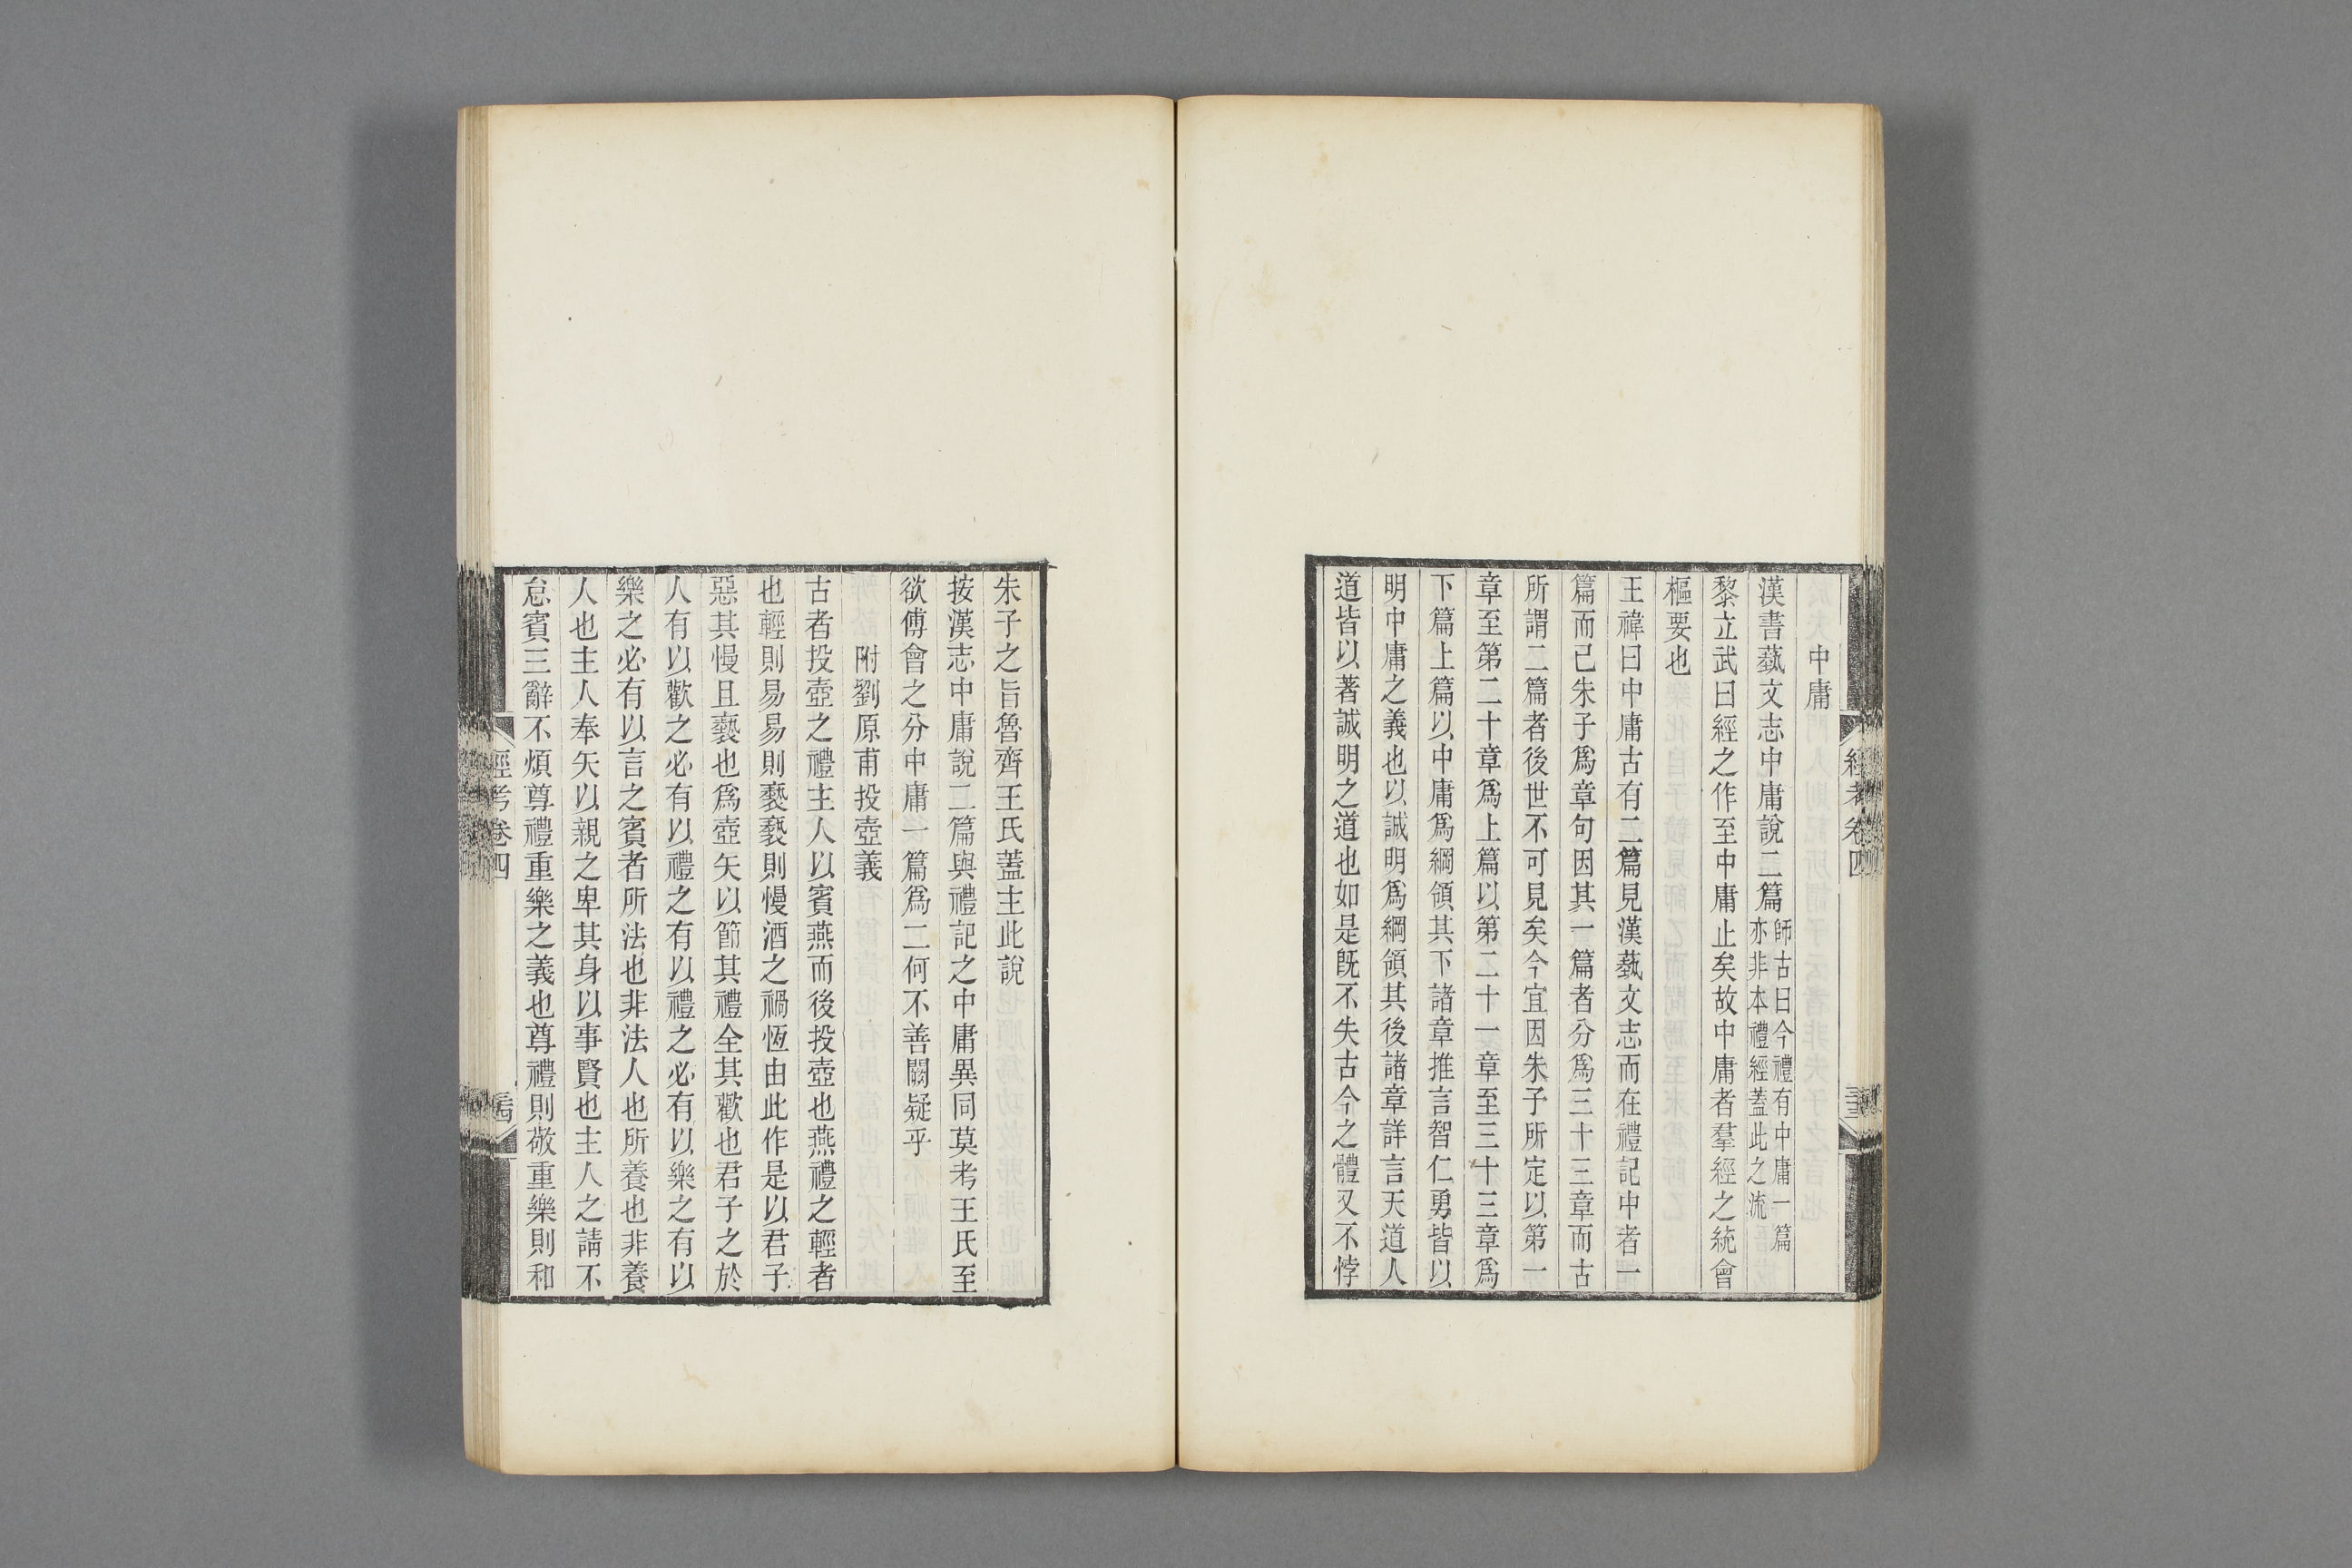 中庸
漢書藝文志中庸說二篇師古曰今禮有中庸一篇亦非本禮經蓋此之流
黎立武曰經之作至中庸止矣故中庸者羣經之統會
樞要也
王禕曰中庸古有二篇見漢藝文志而在禮記中者一
篇而已朱子爲章句因其一篇者分爲三十三章而古
所謂二篇者後世不可見矣今宜因朱子所定以第一
章至第二十章爲上篇以第二十一章至三十三章爲
下篇上篇以中庸爲綱領其下諸章推言智仁勇皆以
明中庸之義也以誠明爲綱領其後諸章詳言天道人
道皆以著誠明之道也如是旣不失古今之體又不悖
經考卷四
朱子之旨魯齊王氏蓋主此說
按漢志中庸說二篇與禮記之中庸異同莫考王氏至
欲傅會之分中庸一篇爲二何不善闕疑乎
附劉原甫投壺義
古者投壺之禮主人以賓燕而後投壺也燕禮之輕者
也輕則易易則褻褻則慢酒之禍恆由此作是以君子
惡其慢且褻也爲壺矢以節其禮全其歡也君子之於
人有以歡之必有以禮之有以禮之必有以樂之有以
樂之必有以言之賓者所法也非法人也所養也非養
人也主人奉矢以親之卑其身以事賢也主人之請不
怠賓三辭不煩尊禮重樂之義也尊禮則敬重樂則和
經考卷四